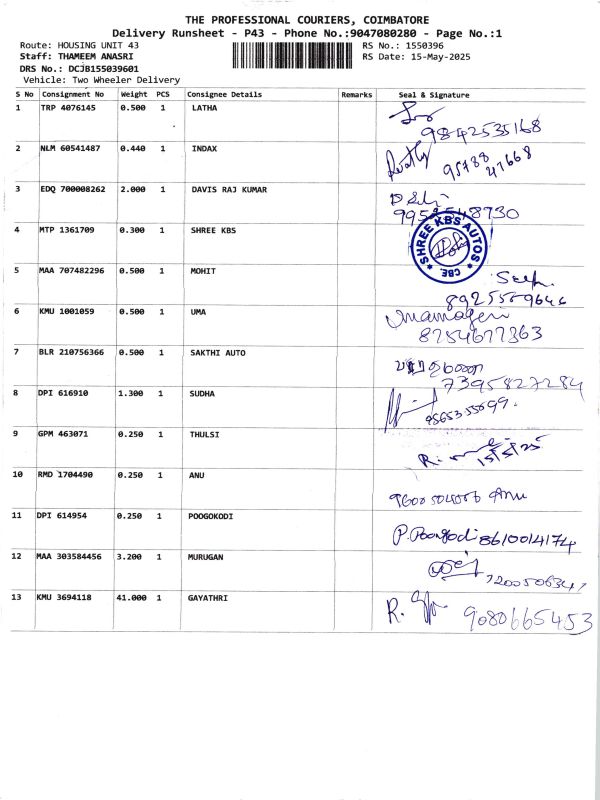 THE PROFESSIONAL COURIERS, COIMBATORE
Delivery Runsheet - P43 - Phone No.:9047080280 - Page No.:1
Route: HOUSING UNIT 43 RS No.: 1550396
Staff: THAMEEM ANASRI RS Date: 15-May-2025
DRS No.: DCJB155039601
Vehicle: Two Wheeler Delivery
S No Consignment No Weight PCS Consignee Details Remarks Seal & Signature
1 TRP 4076145 0.500 1 LATHA
9842535168
2 NLM 60541487 0.440 1 INDAX
95788 47668
3 EDQ 700008262 2.000 1 DAVIS RAJ KUMAR
4 MTP 1361709 0.300 1 SHREE KBS
SHREE KBS AUTOS
CBE.
5 MAA 707482296 0.500 1 MOHIT
6 KMU 1001059 0.500 1 UMA
7 BLR 210756366 0.500 1 SAKTHI AUTO
7395827284
8 DPI 616910 1.300 1 SUDHA
9 GPM 463071 0.250 1 THULSI
15/5/25
10 RMD 1704490 0.250 1 ANU
Anu
11 DPI 614954 0.250 1 POOGOKODI
P. Poongodi 8610014174
12 MAA 303584456 3.200 1 MURUGAN
7200506347
13 KMU 3694118 41.000 1 GAYATHRI
R. 9080665453